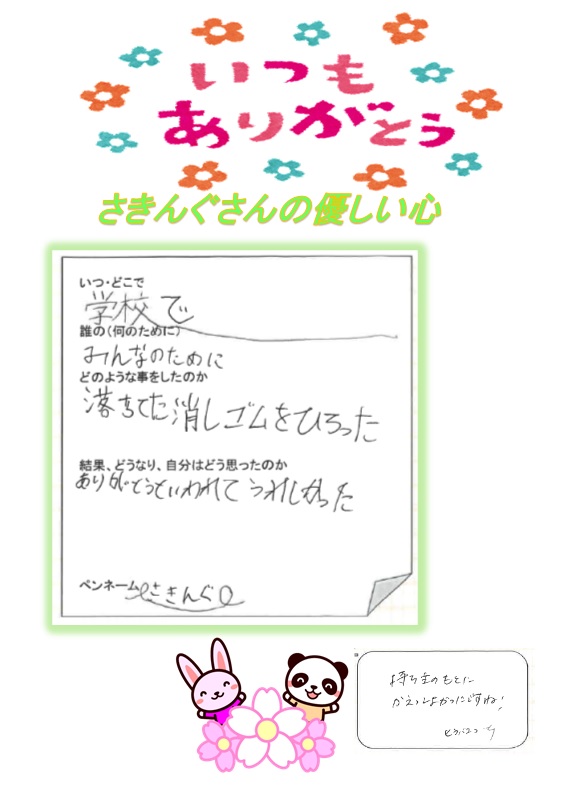 いつも
ありがとう
さきんぐさんの優しい心
いつ・どこで
学校で
誰の(何のために)
みんなのために
どのような事をしたのか
落ちてた消しゴムをひろった
結果、どうなり、自分はどう思ったのか
ありがとうといわれてうれしかった
ペンネーム さきんぐ
持ち主のもとに
かえってよかったですね!